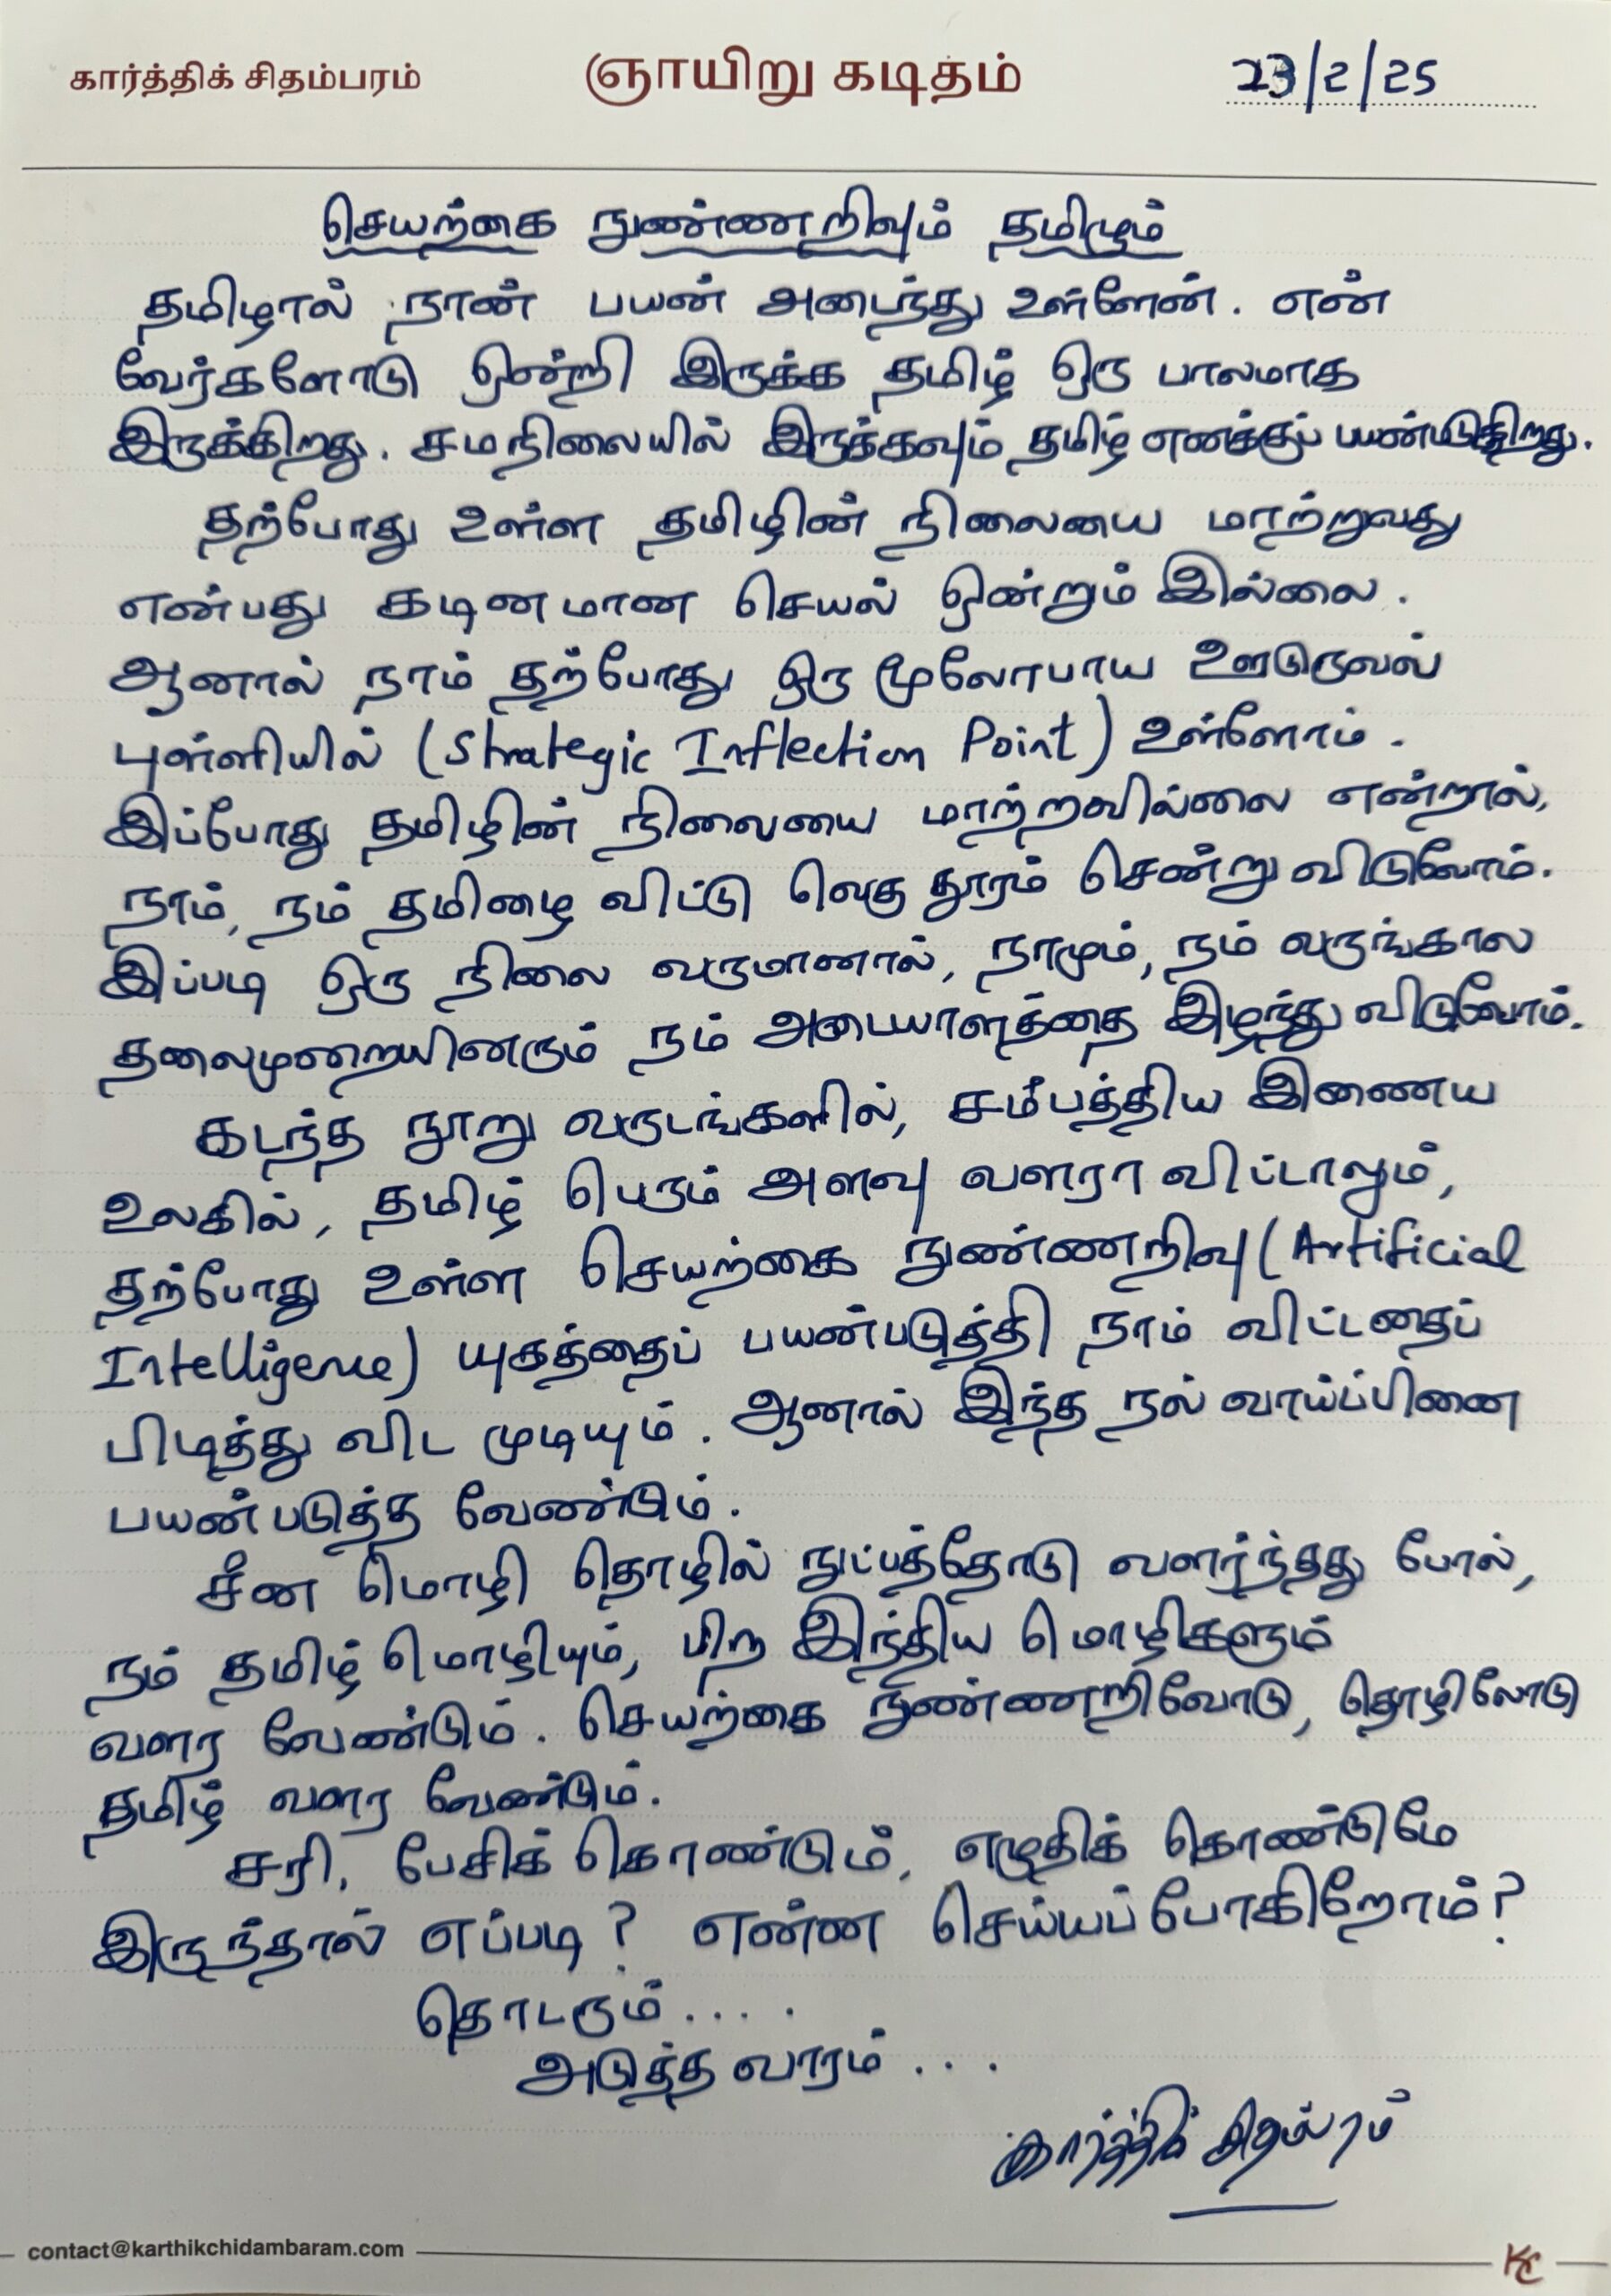 கார்த்திக் சிதம்பரம்
ஞாயிறு கடிதம்
23/2/25
செயற்கை நுண்ணறிவும் தமிழும்
தமிழால் நான் பயன் அடைந்து உள்ளேன். என்
வேர்களோடு ஒன்றி இருக்க தமிழ் ஒரு பாலமாக
இருக்கிறது. சமநிலையில் இருக்கவும் தமிழ் எனக்குப் பயன்படுகிறது.
தற்போது உள்ள தமிழின் நிலையை மாற்றுவது
என்பது கடினமான செயல் ஒன்றும் இல்லை.
ஆனால் நாம் தற்போது ஒரு மூலோபாய ஊடுருவல்
புள்ளியில் (Strategic Inflection Point) உள்ளோம்.
இப்போது தமிழின் நிலையை மாற்றவில்லை என்றால்,
நாம், நம் தமிழை விட்டு வெகு தூரம் சென்று விடுவோம்.
இப்படி ஒரு நிலை வருமானால், நாமும், நம் வருங்கால
தலைமுறையினரும் நம் அடையாளத்தை இழந்து விடுவோம்.
கடந்த நூறு வருடங்களில், சமீபத்திய இணைய
உலகில், தமிழ் பெரும் அளவு வளரா விட்டாலும்,
தற்போது உள்ள செயற்கை நுண்ணறிவு (Artificial
Intelligence) யுகத்தைப் பயன்படுத்தி நாம் விட்டதைப்
பிடித்து விட முடியும். ஆனால் இந்த நல் வாய்ப்பினை
பயன்படுத்த வேண்டும்.
சீன மொழி தொழில் நுட்பத்தோடு வளர்ந்தது போல்,
நம் தமிழ் மொழியும், பிற இந்திய மொழிகளும்
வளர வேண்டும். செயற்கை நுண்ணறிவோடு, தொழிலோடு
தமிழ் வளர வேண்டும்.
சரி, பேசிக் கொண்டும், எழுதிக் கொண்டுமே
இருந்தால் எப்படி? என்ன செய்யப் போகிறோம்?
தொடரும்....
அடுத்த வாரம்...
கார்த்திக் சிதம்பரம்
contact@karthikchidambaram.com
KC